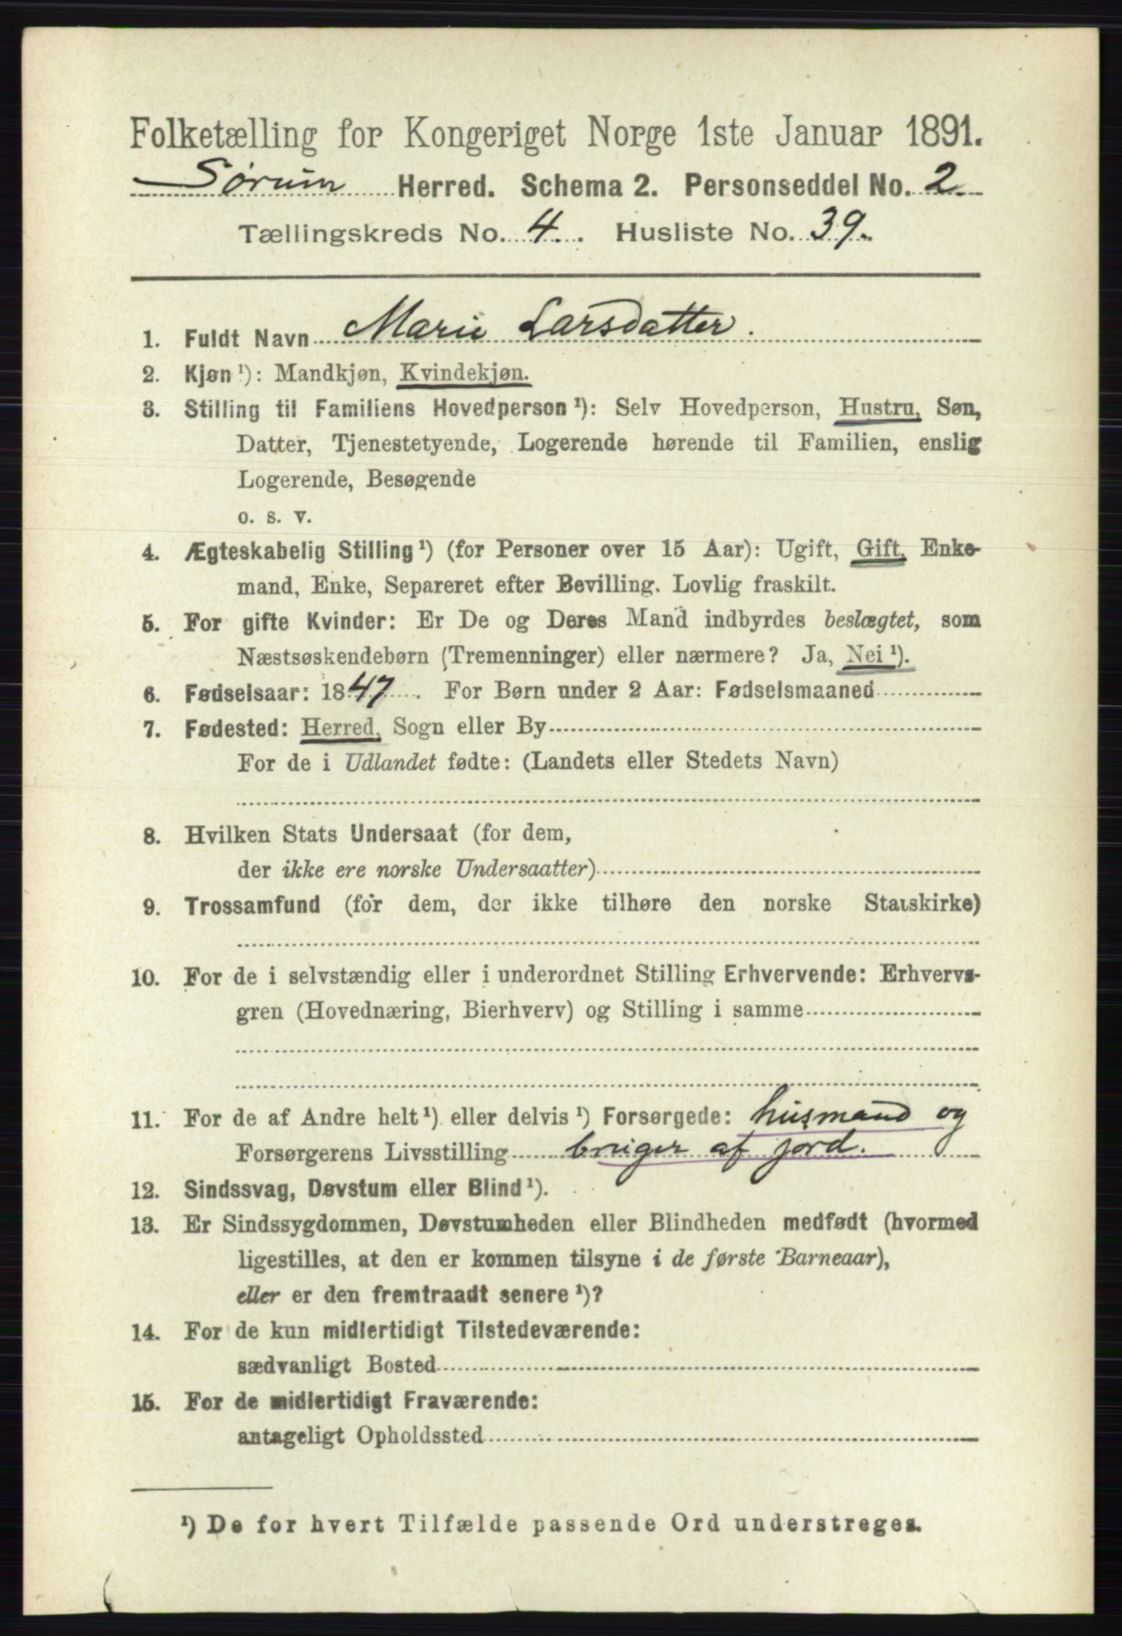 Folketælling for Kongeriget Norge 1ste Januar 1891.
Sørum Herred. Schema 2. Personseddel No. 2.
Tællingskreds No. 4. Husliste No. 39.
1. Fuldt Navn Marie Larsdatter.
2. Kjøn ¹): Mandkjøn, Kvindekjøn.
3. Stilling til Familiens Hovedperson ¹): Selv Hovedperson, Hustru, Søn,
Datter, Tjenestetyende, Logerende hørende til Familien, enslig
Logerende, Besøgende
o. s. v.
4. Ægteskabelig Stilling ¹) (for Personer over 15 Aar): Ugift, Gift, Enke-
mand, Enke, Separeret efter Bevilling. Lovlig fraskilt.
5. For gifte Kvinder: Er De og Deres Mand indbyrdes beslægtet, som
Næstsøskendebørn (Tremenninger) eller nærmere? Ja, Nei ¹).
6. Fødselsaar: 1847. For Børn under 2 Aar: Fødselsmaaned
7. Fødested: Herred, Sogn eller By
For de i Udlandet fødte: (Landets eller Stedets Navn)
8. Hvilken Stats Undersaat (for dem,
der ikke ere norske Undersaatter)
9. Trossamfund (for dem, der ikke tilhøre den norske Statskirke)
10. For de i selvstændig eller i underordnet Stilling Erhvervende: Erhvervs-
gren (Hovednæring, Bierhverv) og Stilling i samme
11. For de af Andre helt ¹) eller delvis ¹) Forsørgede: husmand og
Forsørgerens Livsstilling bruger af jord.
12. Sindssvag, Døvstum eller Blind ¹).
13. Er Sindssygdommen, Døvstumheden eller Blindheden medfødt (hvormed
ligestilles, at den er kommen tilsyne i de første Barneaar),
eller er den fremtraadt senere ¹)?
14. For de kun midlertidigt Tilstedeværende:
sædvanligt Bosted
15. For de midlertidigt Fraværende:
antageligt Opholdssted
¹) De for hvert Tilfælde passende Ord understreges.